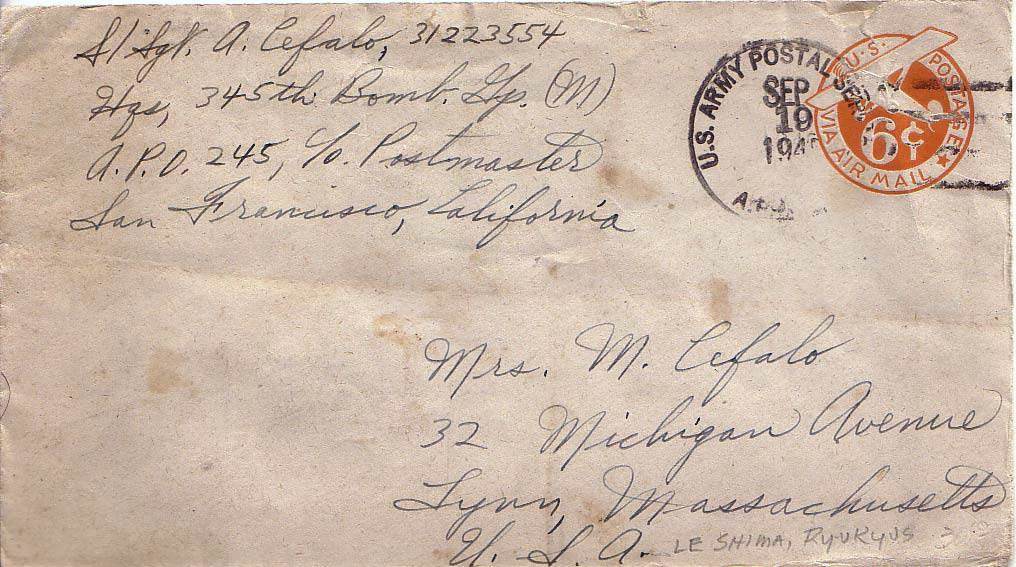 S/Sgt. A. Cefalo, 31223554
Hqs, 345th Bomb. Gp. (M)
A.P.O. 245, c/o. Postmaster
San Francisco, California
U.S. ARMY POSTAL SERV
SEP
19
A.P.O.
U.S. POSTAGE
6¢
VIA AIR MAIL
Mrs. M. Cefalo
32 Michigan Avenue
Lynn, Massachusetts
U. S. A.
LE SHIMA, RYUKYUS 3